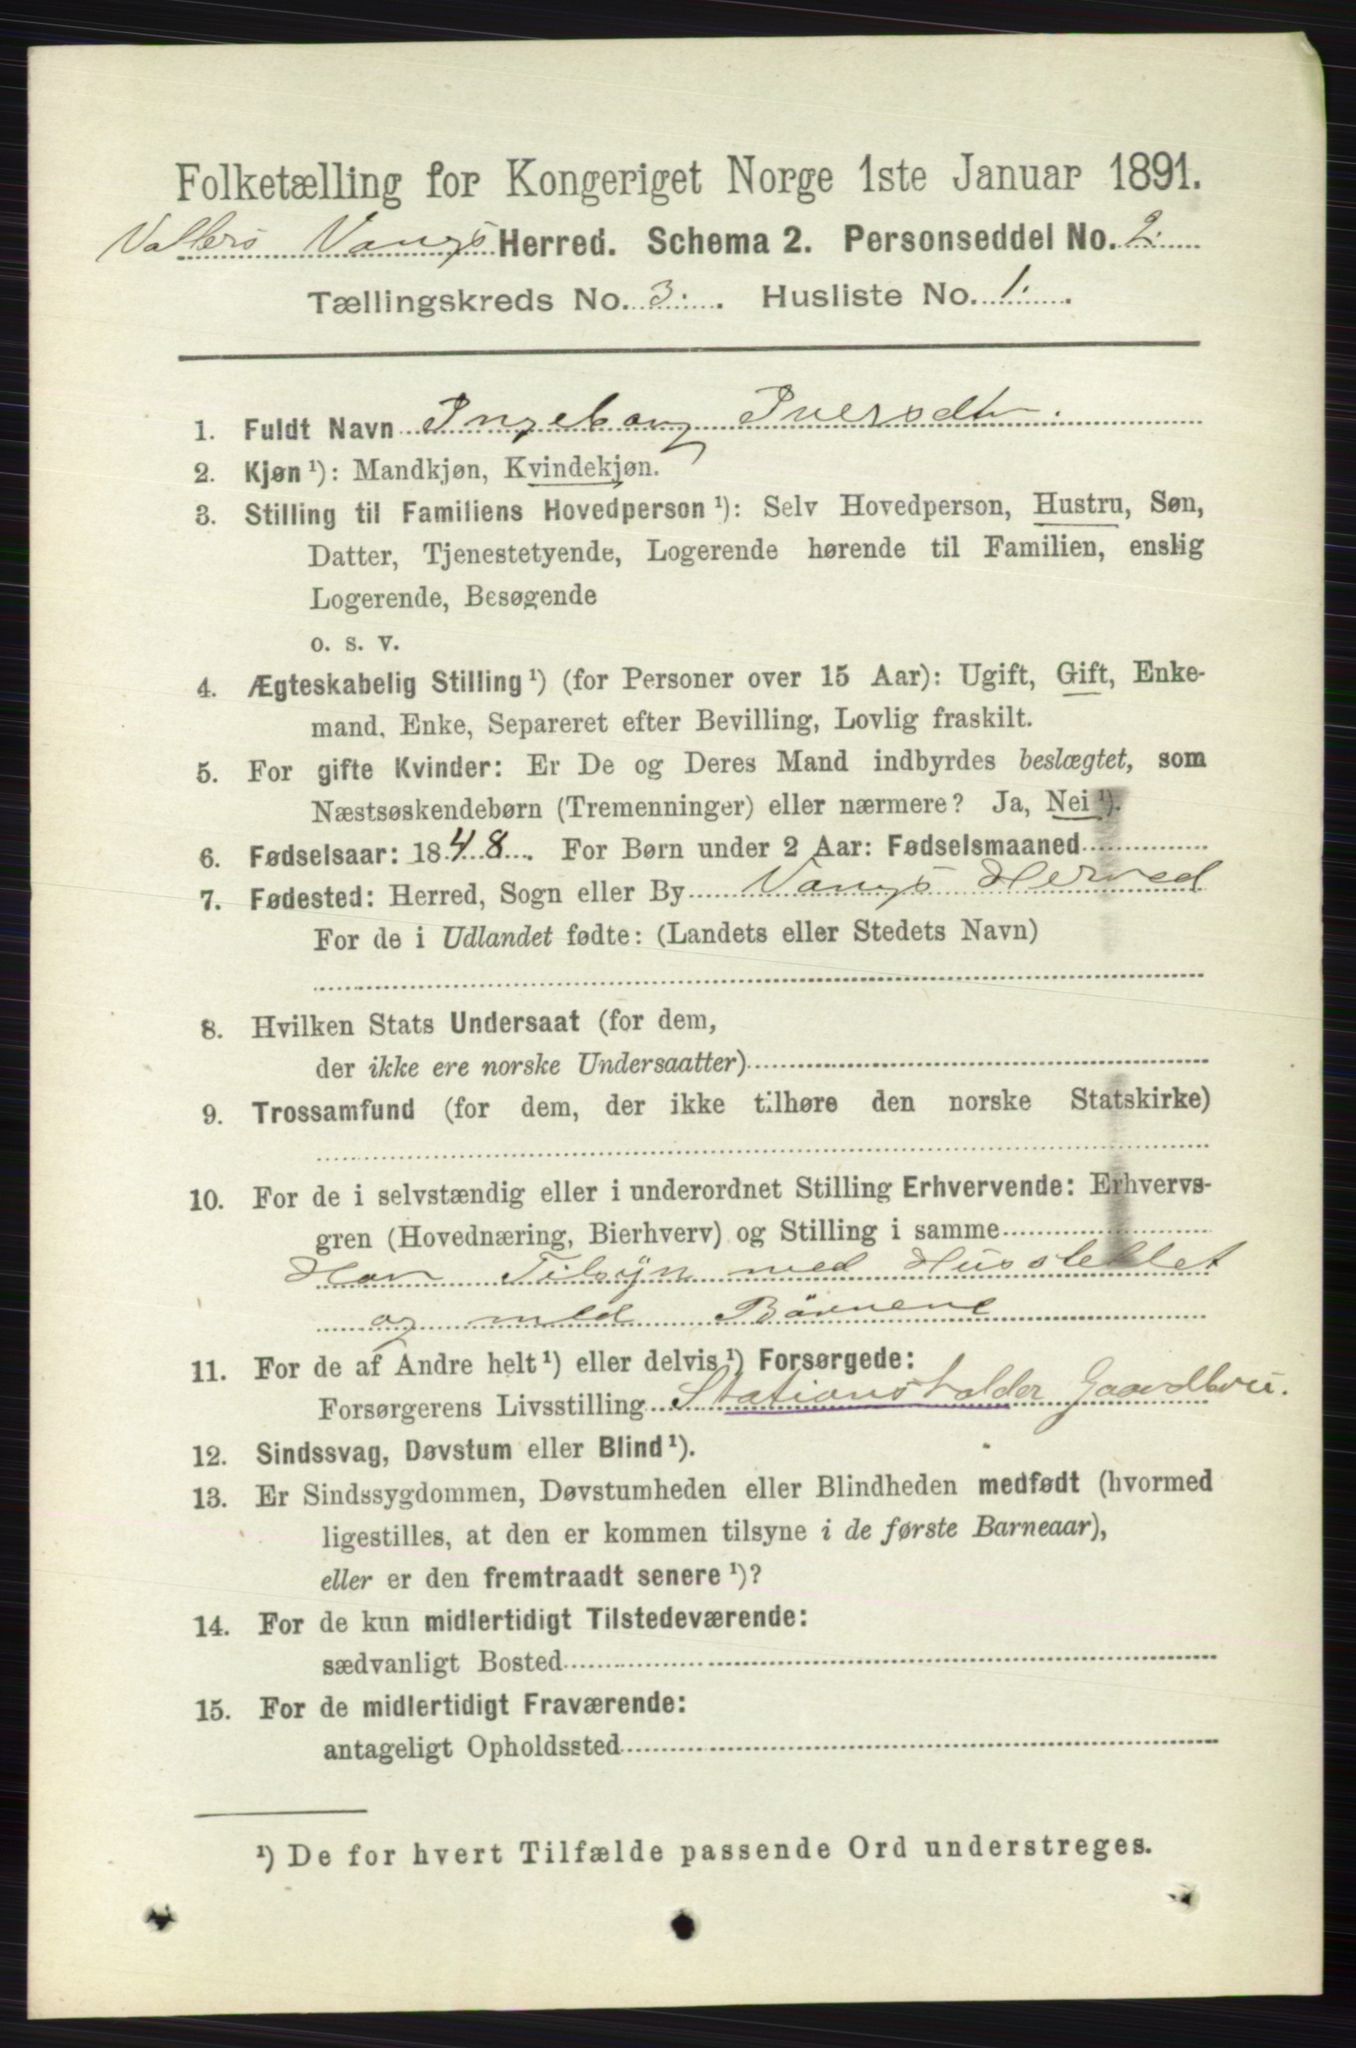 Folketælling for Kongeriget Norge 1ste Januar 1891.
Vallers Vangs Herred. Schema 2. Personseddel No. 2.
Tællingskreds No. 3. Husliste No. 1.
1. Fuldt Navn Ingeborg Iversdtr.
2. Kjøn ¹): Mandkjøn, Kvindekjøn.
3. Stilling til Familiens Hovedperson ¹): Selv Hovedperson, Hustru, Søn,
Datter, Tjenestetyende, Logerende hørende til Familien, enslig
Logerende, Besøgende
o. s. v.
4. Ægteskabelig Stilling ¹) (for Personer over 15 Aar): Ugift, Gift, Enke-
mand, Enke, Separeret efter Bevilling, Lovlig fraskilt.
5. For gifte Kvinder: Er De og Deres Mand indbyrdes beslægtet, som
Næstsøskendebørn (Tremenninger) eller nærmere? Ja, Nei ¹).
6. Fødselsaar: 1848. For Børn under 2 Aar: Fødselsmaaned
7. Fødested: Herred, Sogn eller By Vangs Herred
For de i Udlandet fødte: (Landets eller Stedets Navn)
8. Hvilken Stats Undersaat (for dem,
der ikke ere norske Undersaatter)
9. Trossamfund (for dem, der ikke tilhøre den norske Statskirke)
10. For de i selvstændig eller i underordnet Stilling Erhvervende: Erhvervs-
gren (Hovednæring, Bierhverv) og Stilling i samme
Har Tilsÿn med Husstellet
og med Börnene
11. For de af Andre helt ¹) eller delvis ¹) Forsørgede:
Forsørgerens Livsstilling Stationsholder Gaardbru.
12. Sindssvag, Døvstum eller Blind ¹).
13. Er Sindssygdommen, Døvstumheden eller Blindheden medfødt (hvormed
ligestilles, at den er kommen tilsyne i de første Barneaar),
eller er den fremtraadt senere ¹)?
14. For de kun midlertidigt Tilstedeværende:
sædvanligt Bosted
15. For de midlertidigt Fraværende:
antageligt Opholdssted
¹) De for hvert Tilfælde passende Ord understreges.